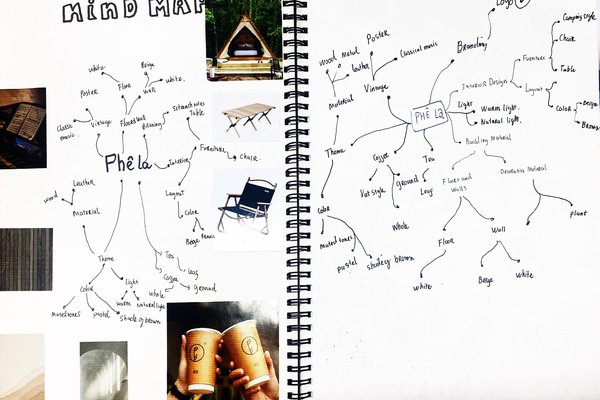 MIND MAP
white
Beige
Poster
Floor
wall
white.
Classic
music.
Vintage
Floor&Wall
Branding
Table
Phê la
interior
Furniture
chair.
Leather
wood
Material
Layout
Color
Beige
Brown
Theme
Tea
leaf
Color
light
Coffee
whole
ground
Muted tones
pastel
warm
Natural light
shade of brown
Logo
Branding
Camping style
Chair
Furniture
Table
Wood
Metal
Leather
Poster
Classical music
Material
Vintage
Interior Design
Layout
Color
Design
Brown
Phê La
Light
Warm light.
Natural light.
Building Material
Theme
Coffee
Tea
ground
leaf
Whole
Floors and
Walls
Decorating Material
plant
Color
Muted tones
pastel
shades of brown
Floor
Wall
white
Beige
White